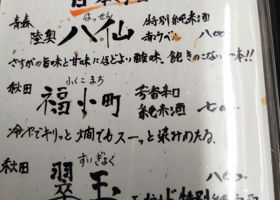 日本酒
青森
陸奥 八仙 特別純米酒
はっせん
赤ラベル 八〇〇
さすがの旨味と甘味にほどよい酸味、飽きのこない一本!!
ふくこまち
秋田 福小町 芳香辛口
純米酒 七〇〇
冷やでキリッと燗でもスーッと染みわたる。
すいぎょく
秋田 翠玉 特別純米